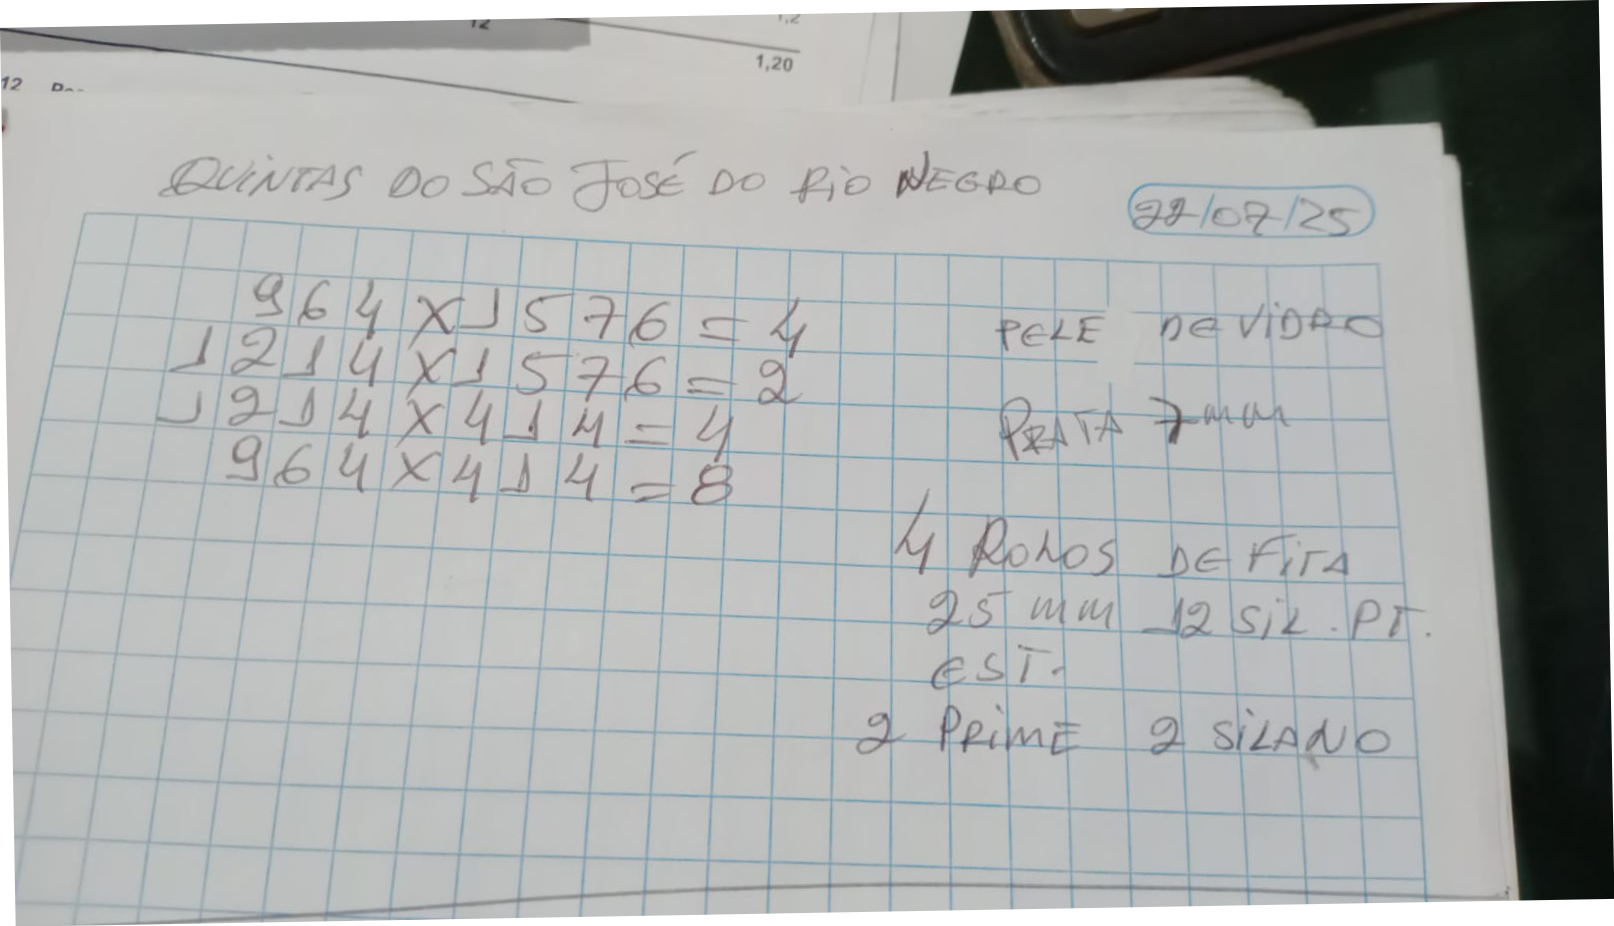 12
1,2
1,20
12
QUINTAS DO SÃO JOSÉ DO RIO NEGRO
22/07/25
964X1576=4
1214X1576=2
1214X414=4
964X414=8
PELE DE VIDRO
PRATA 7mm
4 ROLOS DE FITA
25 mm 12 SIL. PT.
EST.
2 PRIME 2 SILANO